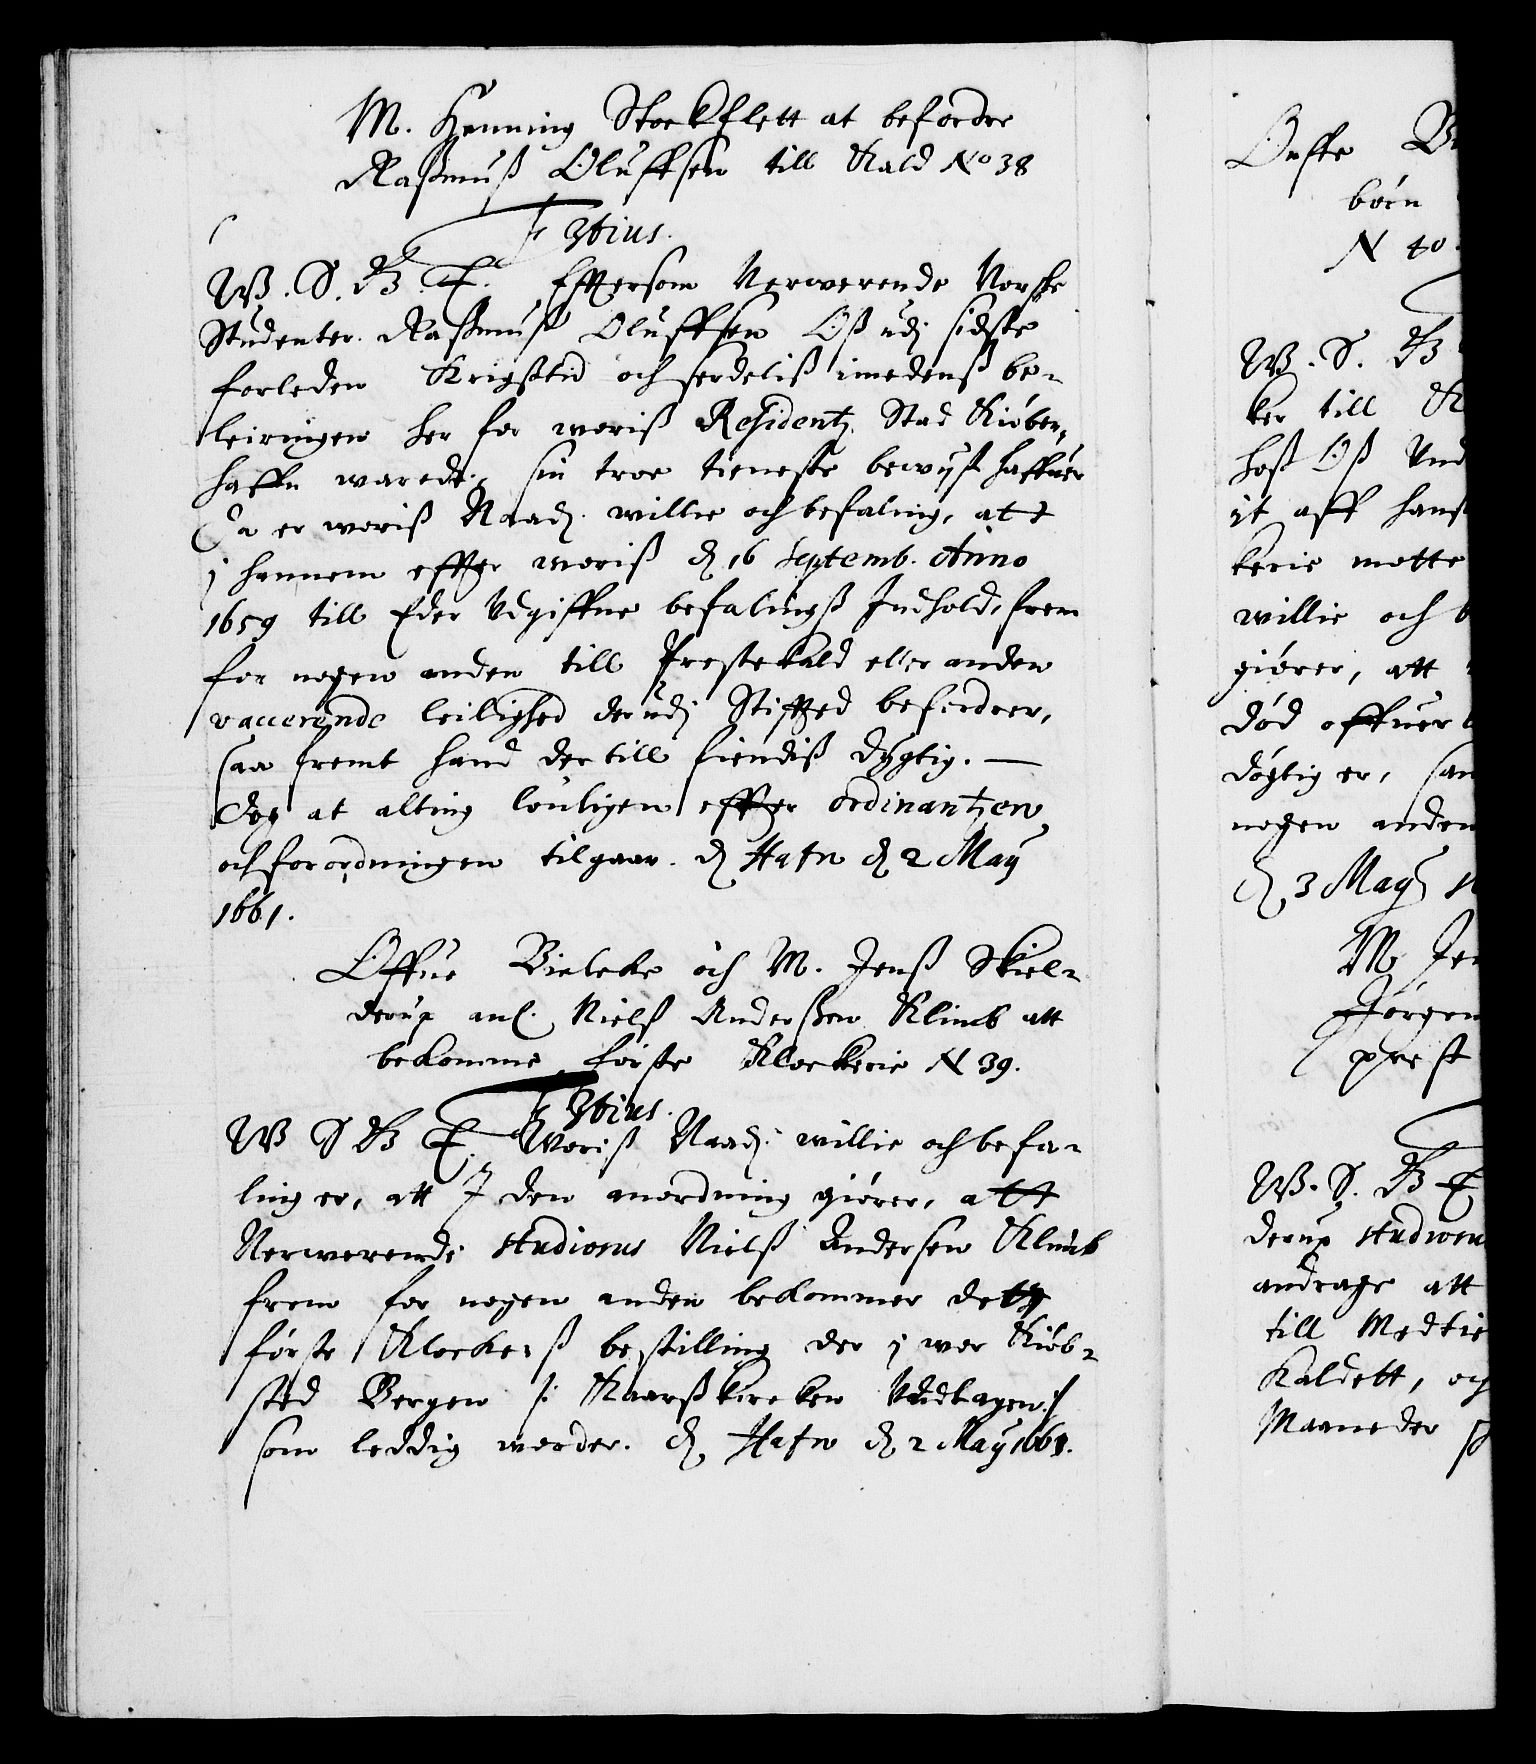 M. Henning Stockflett at befordre
Rasmuß Oluffsen till Kald No 38
F 3tius.
W. S. G. T. Efftersom Nerwerende Norske
Studenter Rasmuß Oluffsen Oß udj sidste
forleden Krigßtid och serdeliß imedenß be-
leiringen her for woriß Residentz Stad Kiöben,
haffn warede, sin troe tieneste bewyst haffuer
Da er woriß Naad. willie och befaling, att
j hannem effter woriß d 16 Septemb. Anno
1659 till Eder Udgiffne befalingß Indhold, frem
for nogen anden till Prestekald eller anden
vacerende leilighed derudj Stiffted befordrer,
saa fremt hand dertill fiendiß dygtig. —
Dog at alting louligen effter ordinantzen
och forordningen tilgaar. d Hafn d 2 May
1661.
Offue Bielcke och M. Jenß Skiel-
derup anl. Nielß Anderßen Klimb att
bekomme förste Klockerie N 39.
F 3tius.
W S G T. Woriß Naad. willie och befa-
ling er, att I den anordning giörer, att
Nerwerende studiosus Nielß Andersen Klimb
frem for nogen anden bekommer dett
förste Klockerß bestilling der j wor Kiöb-
sted Bergen /: Kaarßkircken Undtagen :/
som leddig worder. d Hafn d 2 May 1661.
Offe
börn
N 40.
W. S. G
ker till K
hoß Oß Und
it aff hanß
kerie motte
willie och b
giörer, att
död offuer
dögtig er, saa
nogen anden
d 3 May
M Jen
Jörgen
prest
W. S. G T
derup studiosu
andrage att
till Medtie
Kaldett, och
Maaneder